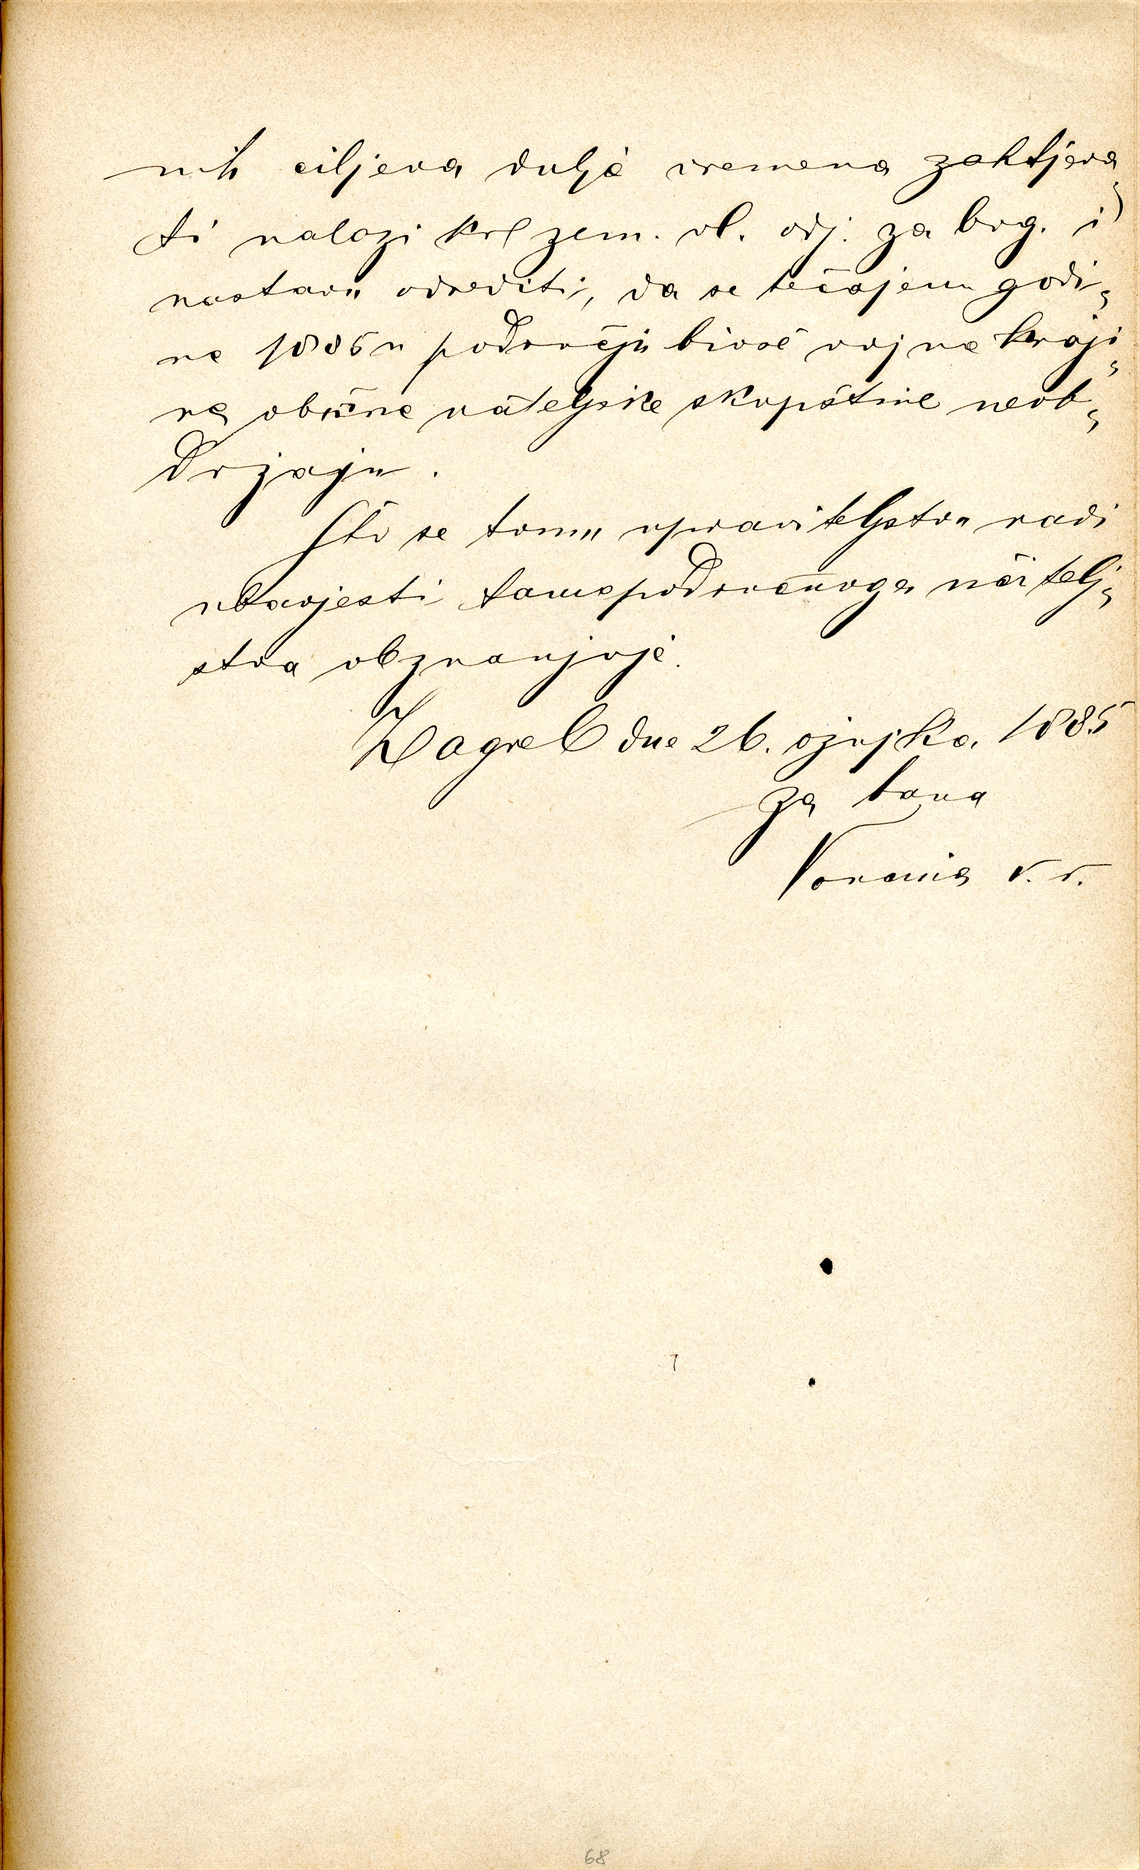 nih ciljeva dulje vremena zahtjeva,
ti nalazi kr. zem. vl. odj. za bog. i
nastavu odrediti, da se tečajem godi,
ne 1885 u području bivše vojne kraji,
ne obične učiteljske skupštine neob,
držaju.
Što se tomu upraviteljstvu radi
obavjesti tamopodručnoga učitelj,
stva obznanjuje.
Zagreb dne 26. ožujka. 1885
za bana
Vončina v. r.
68